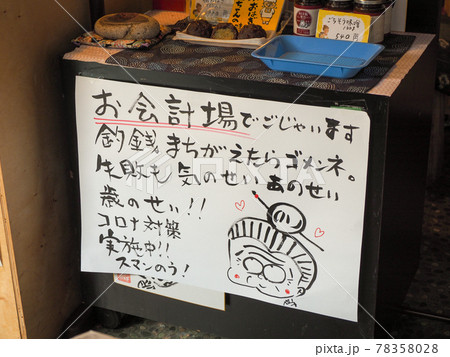 ごちそう味噌
540円
お会計場でごじゃいます
釣銭。まちがえたらゴメンネ。
失敗も気のせいあのせい
歳のせい!!
コロナ対策
実施中!!
スマンのう!
PIXTA
pixta.jp - 78358028